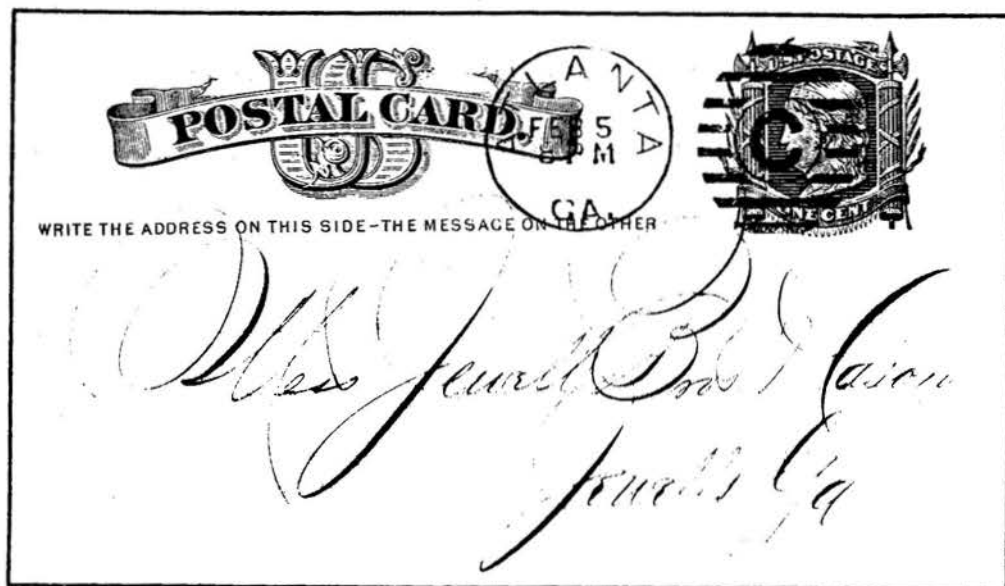 US
POSTAL CARD.
ATLANTA
FEB 5
PM
GA.
U.S. POSTAGE
C
ONE CENT
WRITE THE ADDRESS ON THIS SIDE-THE MESSAGE ON THE OTHER
Mess Jewell Bros &
Jewells Ga